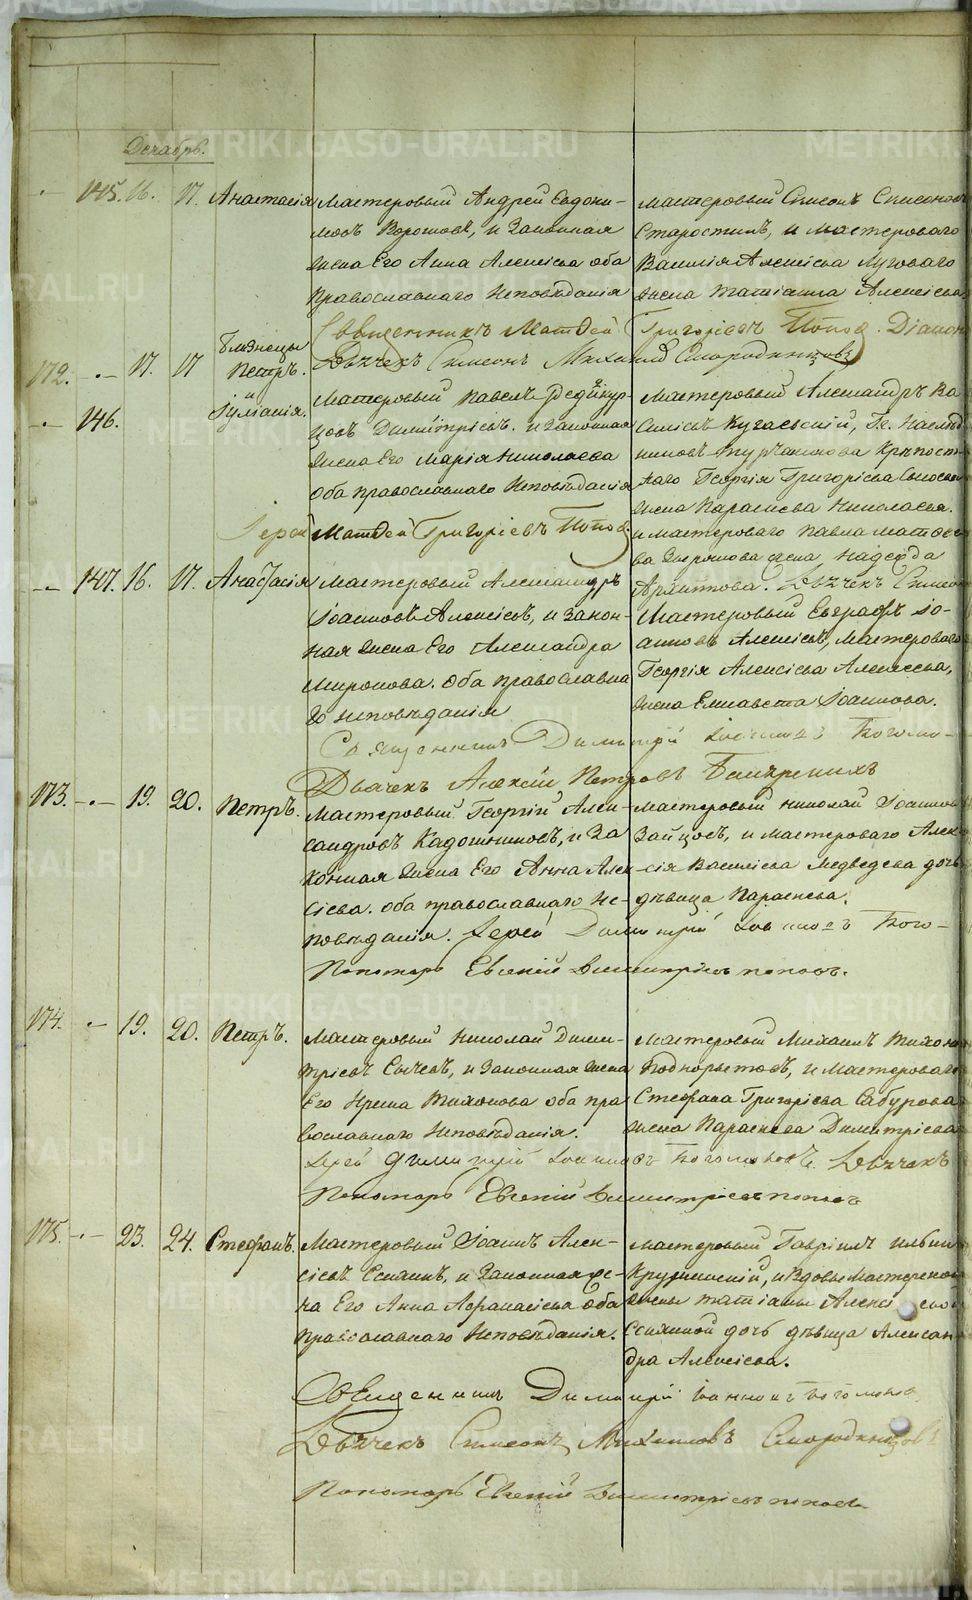 Декабрь.
145. 16. 17. Анастасія
Мастеровый Андрей Евдоки-
мовъ Ворошовъ, и Законная
жена Его Анна Алексіева оба
Православнаго Исповѣданія
Мастеровый Симеонъ Симеоновъ
Старостинъ, и мастероваго
Василія Алексіева Луговаго
жена Татіанна Алексіева
Священникъ Матѳей Григоріевъ Попов. Діакон
Дьячекъ Симеонъ Михайлов Смородинцовъ
172. 17. 17 Близнецы
Петръ.
и
146. Іуліанія.
Мастеровый Павелъ
Димитріевъ. и Законная
жена Его Марія Николаева
Оба православнаго Исповѣданія
Мастеровый Александръ Ва
силіевъ Кугаевскій, Гг. Наслѣд
никовъ Турчанинова Крѣпост-
наго Георгія Григоріева
жена Параскева Николаева.
и мастероваго Павла Матѳее-
ва жена Надежда
Архипова. Дьячекъ Симеон
Іерей Матѳей Григоріевъ Попов.
147. 16. 17. Анастасія
Мастеровый Александръ
Іоанновъ Алексіевъ, и закон-
ная жена Его Александра
Миронова. Оба православна
го исповѣданія
Мастеровый Евграфъ Іо-
анновъ Алексіевъ, Мастероваго
Георгія Алексіева Алексеева,
жена Елисавета Іоаннова.
Священникъ Димитрій Іоанновъ Боголю-
Дьячекъ Алексій Петровъ
173. 19. 20. Петръ.
Мастеровый Георгій Алек-
сандровъ Кадошниковъ, и За
конная жена Его Анна Алек-
сіева. оба православнаго Ис-
повѣданія.
Мастеровый Николай Іоаннов
Зайцовъ, и мастероваго Алек-
сія Василіева Медведева дочь
дѣвица Параскева.
Іерей Димитрій Іоанновъ Бого-
Пономарь Евгеній Димитріевъ поповъ.
174. 19. 20. Петръ.
Мастеровый Николай Дими-
тріевъ Сычевъ, и Законная жена
Его Ирина Тихонова оба пра
вославнаго Исповѣданія.
Мастеровый Михаилъ Тихонов
Подкорытовъ, и Мастероваго
Стефана Григоріева Сабурова
жена Параскева Димитріева
Іерей Димитрій Іоанновъ Боголюбовъ. Дьячекъ
Пономарь Евгеній Димитріевъ попов
175. 23. 24. Стефанъ.
Мастеровый Іоаннъ Алек-
сіевъ Есянинъ, и Законная же-
на Его Анна Афанасіева Оба
Православнаго Исповѣданія.
Мастеровый Гавріилъ Ильин
и Вдовы Мастерской
жены Татіаны
дочь дѣвица Алексан
дра Алексіева.
Священникъ Димитрій Іоанновъ Боголюбов
Дьячекъ Симеонъ Михаиловъ Смородинцовъ
Пономарь Евгеній Димитріевъ попов
METRIKI.GASO-URAL.RU